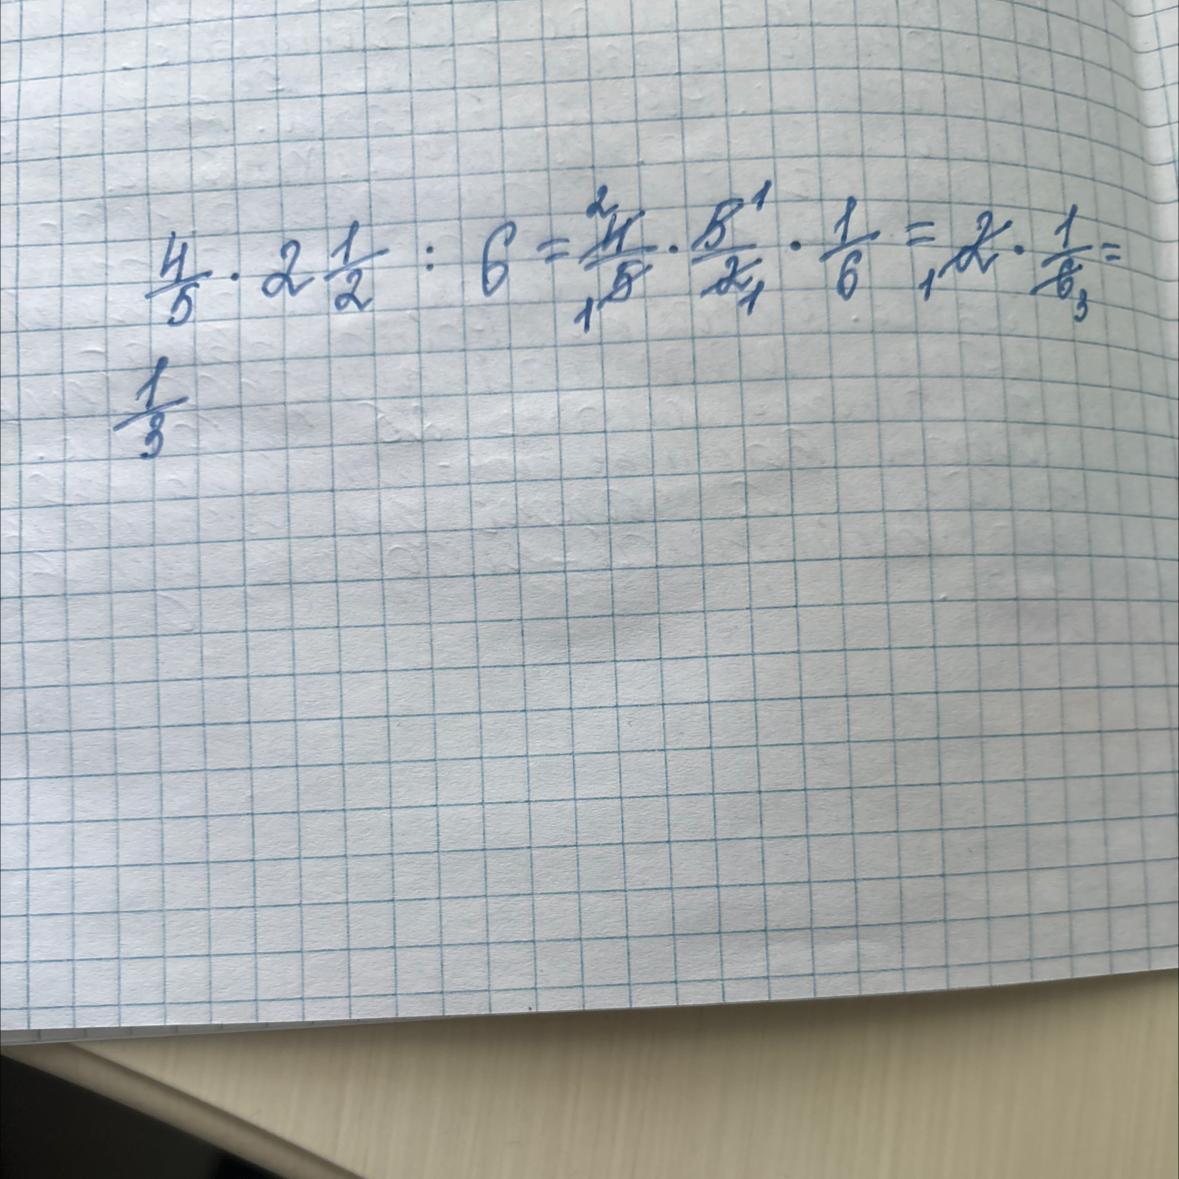 4/5 · 2 1/2 : 6 = ²4/₁5 · 5¹/2₁ · 1/6 = ₁2 · 1/6₃ =
1/3